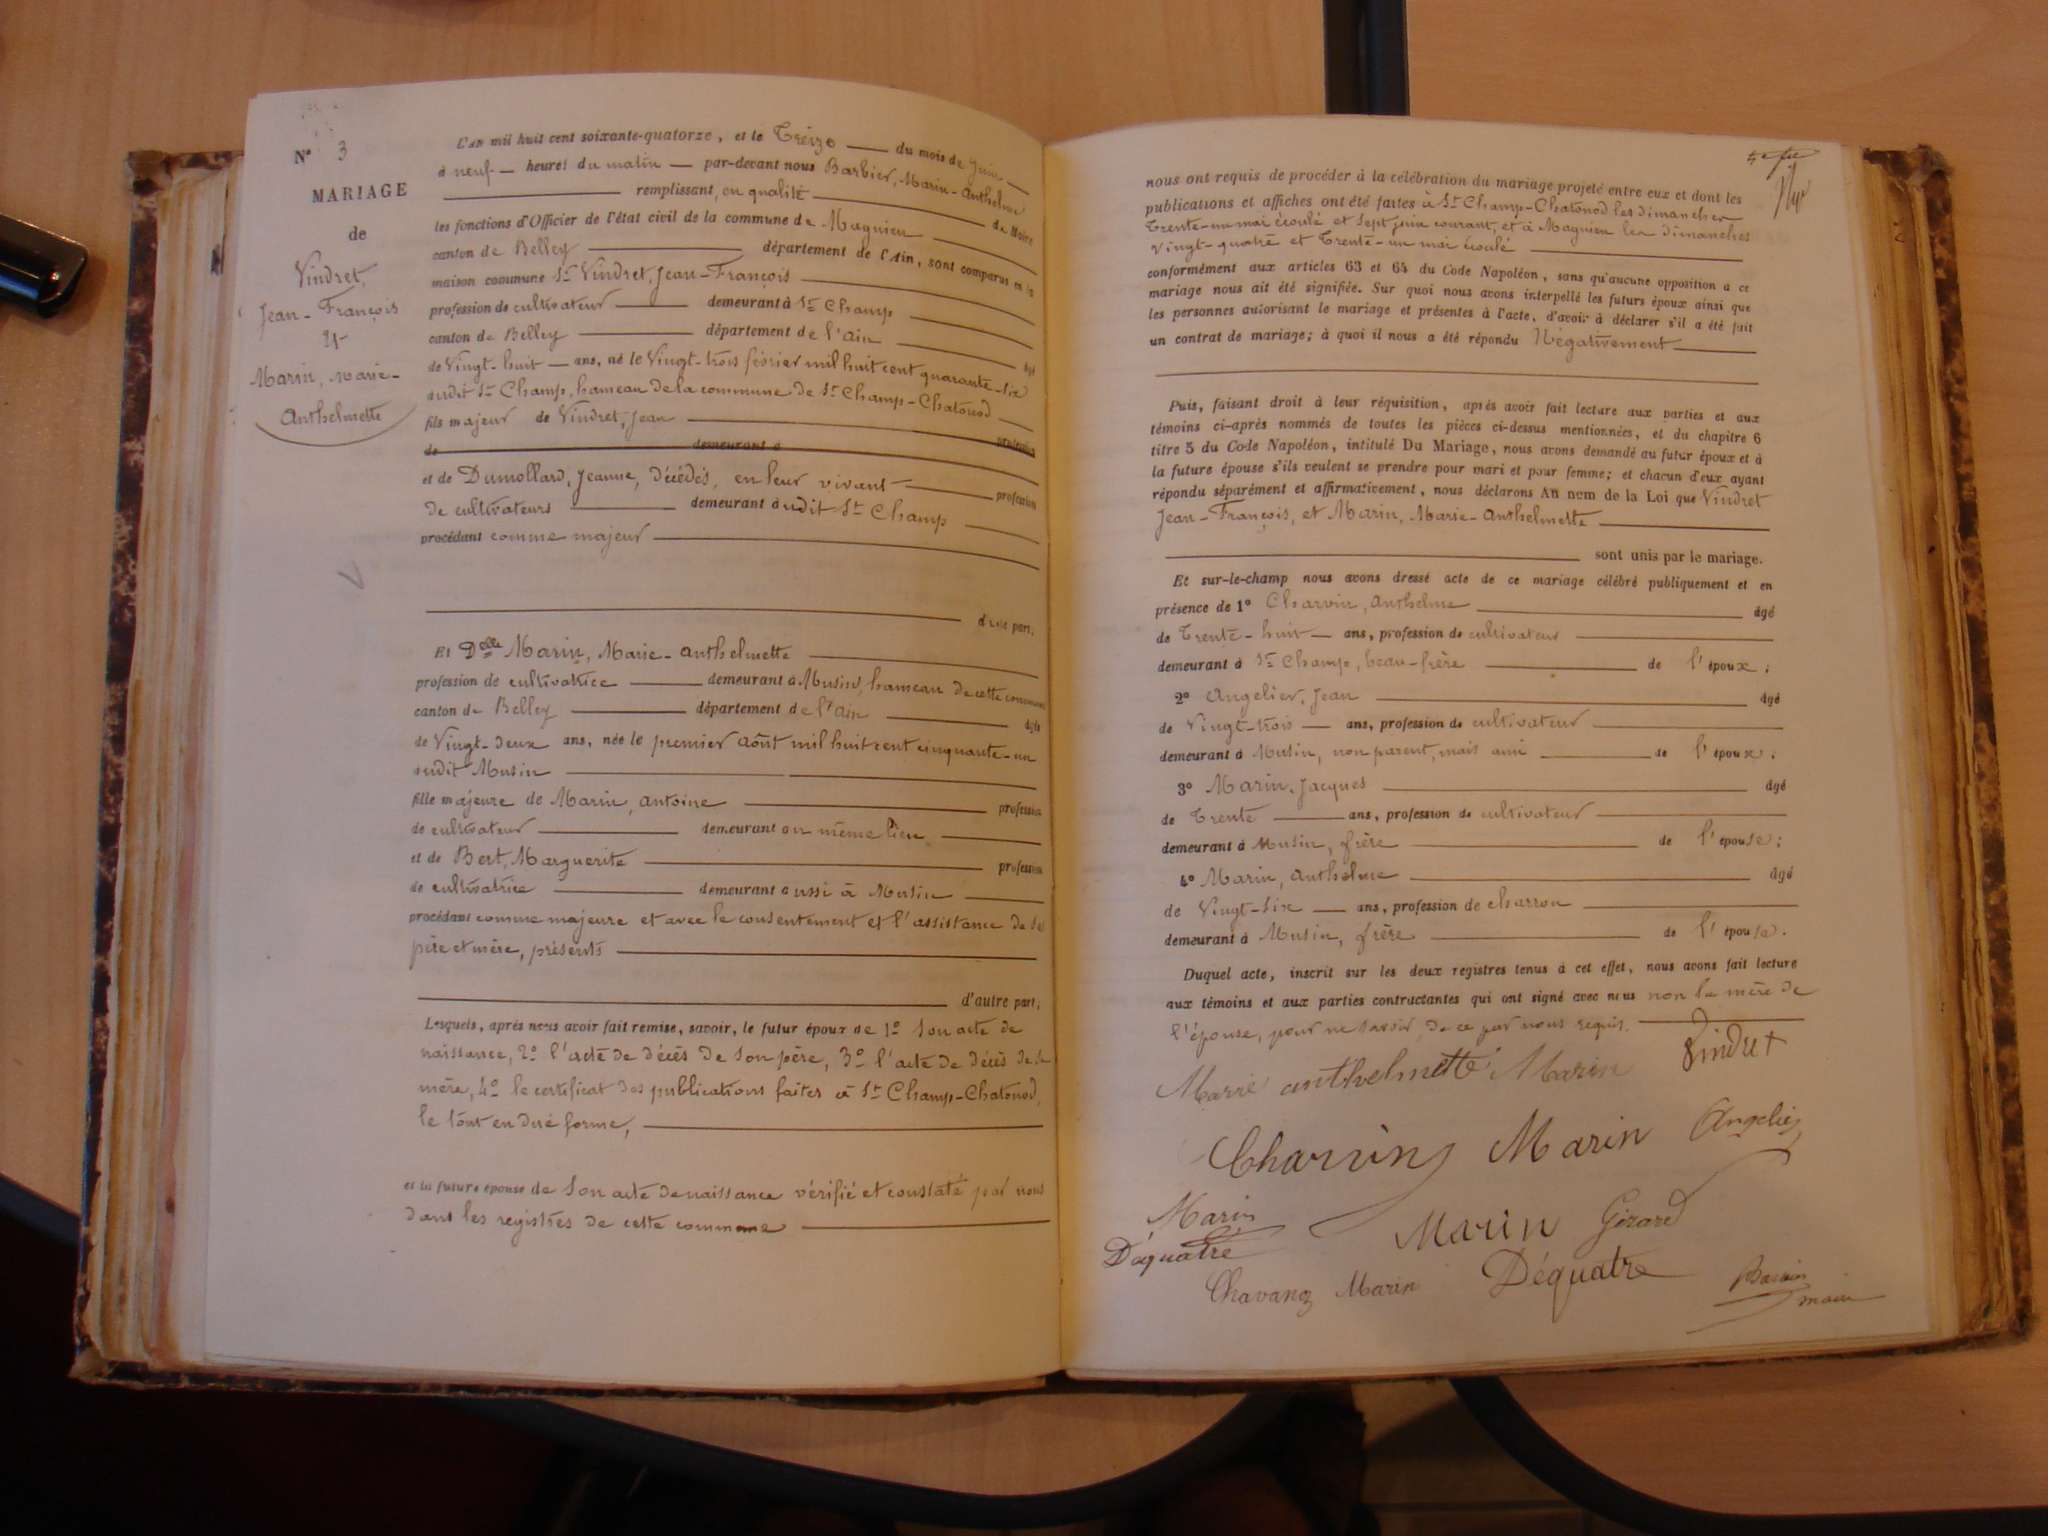 N° 3
MARIAGE
de
Vindret,
Jean-François
et
Marin, Marie-
Anthelmette
L'an mil huit cent soixante-quatorze, et le Treize du mois de Juin
à neuf heures du matin par-devant nous Barbier, Marin-Anthelme
remplissant, en qualité de Maire
les fonctions d'Officier de l'état civil de la commune de Magnieu
canton de Belley département de l'Ain, sont comparus en la
maison commune Sr Vindret, Jean-François
profession de cultivateur demeurant à St Champ
canton de Belley département de l'Ain âgé
de Vingt-huit ans, né le Vingt-trois février mil huit cent quarante-six
audit St Champ, hameau de la commune de St Champ-Chatonod
fils majeur de Vindret, Jean
de demeurant à profession
et de Dumollard, Jeanne, décédés, en leur vivant profession
de cultivateurs demeurant audit St Champ
procédant comme majeur
d'une part;
Et Delle Marin, Marie-Anthelmette
profession de cultivatrice demeurant à Musin, hameau de cette commune
canton de Belley département de l'Ain âgée
de Vingt-deux ans, née le premier Août mil huit cent cinquante-un
audit Musin
fille majeure de Marin, Antoine profession
de cultivateur demeurant au même lieu
et de Bert, Marguerite profession
de cultivatrice demeurant aussi à Musin
procédant comme majeure et avec le consentement et l'assistance de ses
père et mère, présents
d'autre part;
Lesquels, après nous avoir fait remise, savoir, le futur époux de 1° Son acte de
naissance, 2° l'acte de décès de Son père, 3° l'acte de décès de sa
mère, 4° le certificat des publications faites à St Champ-Chatonod,
le tout en due forme,
et la future épouse de Son acte de naissance vérifié et constaté par nous
dans les registres de cette commune
nous ont requis de procéder à la célébration du mariage projeté entre eux et dont les
publications et affiches ont été faites à St Champ-Chatonod les dimanches
Trente-un mai écoulé et Sept juin courant, et à Magnieu les dimanches
Vingt-quatre et Trente-un mai écoulé
conformément aux articles 63 et 64 du Code Napoléon, sans qu'aucune opposition à ce
mariage nous ait été signifiée. Sur quoi nous avons interpellé les futurs époux ainsi que
les personnes autorisant le mariage et présentes à l'acte, d'avoir à déclarer s'il a été fait
un contrat de mariage; à quoi il nous a été répondu Négativement
Puis, faisant droit à leur réquisition, après avoir fait lecture aux parties et aux
témoins ci-après nommés de toutes les pièces ci-dessus mentionnées, et du chapitre 6
titre 5 du Code Napoléon, intitulé Du Mariage, nous avons demandé au futur époux et à
la future épouse s'ils veulent se prendre pour mari et pour femme; et chacun d'eux ayant
répondu séparément et affirmativement, nous déclarons Au nom de la Loi que Vindret
Jean-François, et Marin, Marie-Anthelmette
sont unis par le mariage.
Et sur-le-champ nous avons dressé acte de ce mariage célébré publiquement et en
présence de 1° Charvin, Anthelme âgé
de Trente-huit ans, profession de cultivateur
demeurant à St Champ, beau-frère de l'époux;
2° Angelier, Jean âgé
de Vingt-trois ans, profession de cultivateur
demeurant à Musin, non parent, mais ami de l'époux;
3° Marin, Jacques âgé
de Trente ans, profession de cultivateur
demeurant à Musin, frère de l'épouse;
4° Marin, Anthelme âgé
de Vingt-six ans, profession de charron
demeurant à Musin, frère de l'épouse.
Duquel acte, inscrit sur les deux registres tenus à cet effet, nous avons fait lecture
aux témoins et aux parties contractantes qui ont signé avec nous non la mère de
l'épouse, pour ne savoir, de ce par nous requis.
Marie anthelmette Marin Vindret
Charvin Marin Angelier
Marin Marin Girard
Déquatre
Chavanoz Marin Déquatre
maire